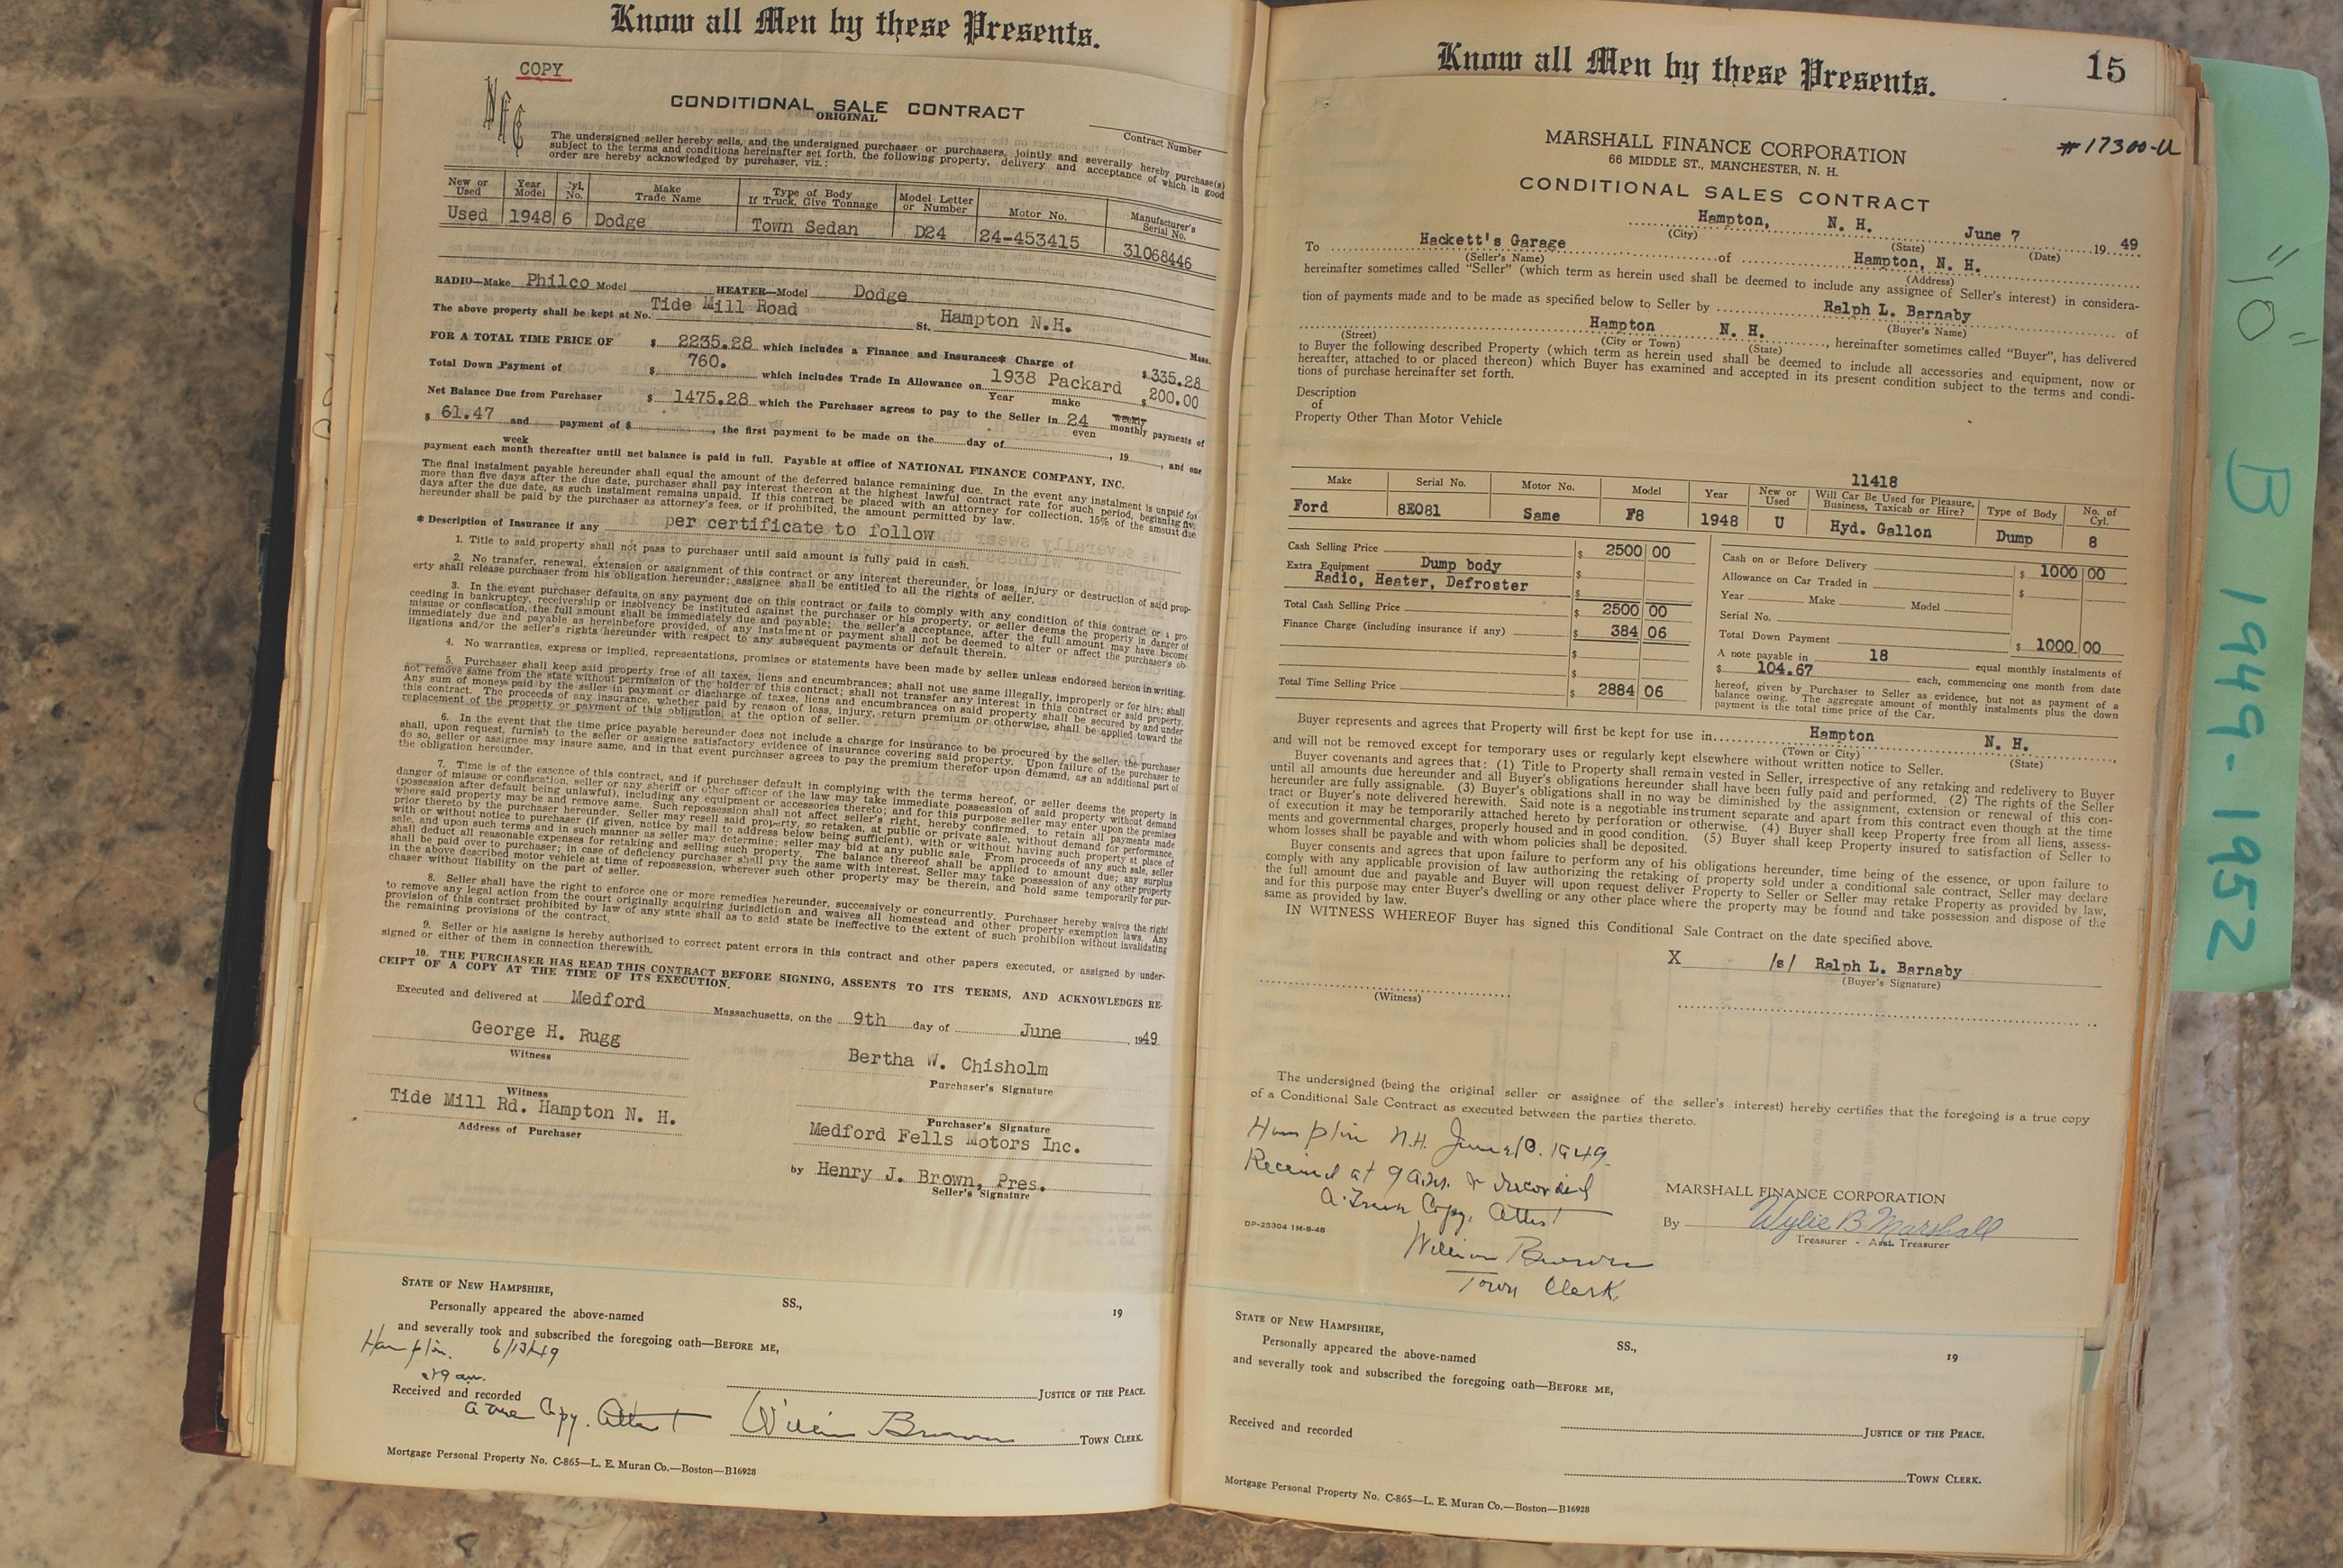 Know all Men by these Presents.
COPY
NFC
CONDITIONAL SALE CONTRACT
ORIGINAL
Contract Number
The undersigned seller hereby sells, and the undersigned purchaser or purchasers, jointly and severally hereby purchase(s)
subject to the terms and conditions hereinafter set forth, the following property, delivery and acceptance of which in good
order are hereby acknowledged by purchaser, viz.:
New or Used Year Model Cyl. No. Make Trade Name Type of Body If Truck, Give Tonnage Model Letter or Number Motor No. Manufacturer's Serial No.
Used 1948 6 Dodge Town Sedan D24 24-453415 31068446
RADIO—Make Philco Model HEATER—Model Dodge
The above property shall be kept at No. Tide Mill Road St. Hampton N.H. Mass.
FOR A TOTAL TIME PRICE OF $ 2235.28 which includes a Finance and Insurance* Charge of $ 335.28
Total Down Payment of $ 760. which includes Trade In Allowance on 1938 Packard $ 200.00
Year make
Net Balance Due from Purchaser $ 1475.28 which the Purchaser agrees to pay to the Seller in 24 weekly monthly payments of
$ 61.47 and payment of $ , the first payment to be made on the day of , 19 , and one
even
week
payment each month thereafter until net balance is paid in full. Payable at office of NATIONAL FINANCE COMPANY, INC.
The final instalment payable hereunder shall equal the amount of the deferred balance remaining due. In the event any instalment is unpaid for
more than five days after the due date, purchaser shall pay interest thereon at the highest lawful contract rate for such period, beginning five
days after the due date, as such instalment remains unpaid. If this contract be placed with an attorney for collection, 15% of the amount due
hereunder shall be paid by the purchaser as attorney's fees, or if prohibited, the amount permitted by law.
* Description of Insurance if any per certificate to follow
1. Title to said property shall not pass to purchaser until said amount is fully paid in cash.
2. No transfer, renewal, extension or assignment of this contract or any interest thereunder, or loss, injury or destruction of said prop-
erty shall release purchaser from his obligation hereunder; assignee shall be entitled to all the rights of seller.
3. In the event purchaser defaults on any payment due on this contract or fails to comply with any condition of this contract or a pro-
ceeding in bankruptcy, receivership or insolvency be instituted against the purchaser or his property, or seller deems the property in danger of
misuse or confiscation, the full amount shall be immediately due and payable; the seller's acceptance, after the full amount may have become
immediately due and payable as hereinbefore provided, of any instalment or payment shall not be deemed to alter or affect the purchaser's ob-
ligations and/or the seller's rights hereunder with respect to any subsequent payments or default therein.
4. No warranties, express or implied, representations, promises or statements have been made by seller unless endorsed hereon in writing.
5. Purchaser shall keep said property free of all taxes, liens and encumbrances; shall not use same illegally, improperly or for hire; shall
not remove same from the state without permission of the holder of this contract; shall not transfer any interest in this contract or said property.
Any sum of money paid by the seller in payment or discharge of taxes, liens and encumbrances on said property shall be secured by and under
this contract. The proceeds of any insurance, whether paid by reason of loss, injury, return premium or otherwise, shall be applied toward the
replacement of the property or payment of this obligation, at the option of seller.
6. In the event that the time price payable hereunder does not include a charge for insurance to be procured by the seller, the purchaser
shall, upon request, furnish to the seller or assignee satisfactory evidence of insurance covering said property. Upon failure of the purchaser to
do so, seller or assignee may insure same, and in that event purchaser agrees to pay the premium therefor upon demand, as an additional part of
the obligation hereunder.
7. Time is of the essence of this contract, and if purchaser default in complying with the terms hereof, or seller deems the property in
danger of misuse or confiscation, seller or any sheriff or other officer of the law may take immediate possession of said property without demand
(possession after default being unlawful), including any equipment or accessories thereto; and for this purpose seller may enter upon the premises
where said property may be and remove same. Such repossession shall not affect seller's right, hereby confirmed, to retain all payments made
prior thereto by the purchaser hereunder. Seller may resell said property, so retaken, at public or private sale, without demand for performance,
with or without notice to purchaser (if given, notice by mail to address below being sufficient), with or without having such property at place of
sale, and upon such terms and in such manner as seller may determine; seller may bid at any public sale. From proceeds of any such sale, seller
shall deduct all reasonable expenses for retaking and selling such property. The balance thereof shall be applied to amount due; any surplus
shall be paid over to purchaser; in case of deficiency purchaser shall pay the same with interest. Seller may take possession of any other property
in the above described motor vehicle at time of repossession, wherever such other property may be therein, and hold same temporarily for pur-
chaser without liability on the part of seller.
8. Seller shall have the right to enforce one or more remedies hereunder, successively or concurrently. Purchaser hereby waives the right
to remove any legal action from the court originally acquiring jurisdiction and waives all homestead and other property exemption laws. Any
provision of this contract prohibited by law of any state shall as to said state be ineffective to the extent of such prohibiion without invalidating
the remaining provisions of the contract.
9. Seller or his assigns is hereby authorized to correct patent errors in this contract and other papers executed, or assigned by under-
signed or either of them in connection therewith.
10. THE PURCHASER HAS READ THIS CONTRACT BEFORE SIGNING, ASSENTS TO ITS TERMS, AND ACKNOWLEDGES RE-
CEIPT OF A COPY AT THE TIME OF ITS EXECUTION.
Executed and delivered at Medford Massachusetts, on the 9th day of June , 1949
George H. Rugg
Witness
Bertha W. Chisholm
Purchaser's Signature
Witness
Tide Mill Rd. Hampton N. H.
Address of Purchaser
Purchaser's Signature
Medford Fells Motors Inc.
by Henry J. Brown, Pres.
Seller's Signature
STATE OF NEW HAMPSHIRE,
SS., 19
Personally appeared the above-named
and severally took and subscribed the foregoing oath—BEFORE ME,
Hampton. 6/13/49
at 9 a.m.
JUSTICE OF THE PEACE.
Received and recorded
a True Copy. Attest William Brown TOWN CLERK.
Mortgage Personal Property No. C-865—L. E. Muran Co.—Boston—B16928
Know all Men by these Presents.
15
#17300-U
MARSHALL FINANCE CORPORATION
66 MIDDLE ST., MANCHESTER, N. H.
CONDITIONAL SALES CONTRACT
Hampton, N. H. June 7 19 49
(City) (State) (Date)
To Hackett's Garage of Hampton, N. H.
(Seller's Name) (Address)
hereinafter sometimes called "Seller" (which term as herein used shall be deemed to include any assignee of Seller's interest) in considera-
tion of payments made and to be made as specified below to Seller by Ralph L. Barnaby of
(Buyer's Name)
Hampton N. H. , hereinafter sometimes called "Buyer", has delivered
(Street) (City or Town) (State)
to Buyer the following described Property (which term as herein used shall be deemed to include all accessories and equipment, now or
hereafter, attached to or placed thereon) which Buyer has examined and accepted in its present condition subject to the terms and condi-
tions of purchase hereinafter set forth.
Description
of
Property Other Than Motor Vehicle
11418
Make Serial No. Motor No. Model Year New or Used Will Car Be Used for Pleasure, Business, Taxicab or Hire? Type of Body No. of Cyl.
Ford 8E081 Same F8 1948 U Hyd. Gallon Dump 8
Cash Selling Price $ 2500 00
Extra Equipment Dump body $
Radio, Heater, Defroster $
Total Cash Selling Price $ 2500 00
Finance Charge (including insurance if any) $ 384 06
$
$
Total Time Selling Price $ 2884 06
Cash on or Before Delivery $ 1000 00
Allowance on Car Traded in $
Year Make Model
Serial No.
Total Down Payment $ 1000 00
A note payable in 18 equal monthly instalments of
$ 104.67 each, commencing one month from date
hereof, given by Purchaser to Seller as evidence, but not as payment of a
balance owing. The aggregate amount of monthly instalments plus the down
payment is the total time price of the Car.
Buyer represents and agrees that Property will first be kept for use in Hampton N. H. ,
(Town or City) (State)
and will not be removed except for temporary uses or regularly kept elsewhere without written notice to Seller.
Buyer covenants and agrees that: (1) Title to Property shall remain vested in Seller, irrespective of any retaking and redelivery to Buyer
until all amounts due hereunder and all Buyer's obligations hereunder shall have been fully paid and performed. (2) The rights of the Seller
hereunder are fully assignable. (3) Buyer's obligations shall in no way be diminished by the assignment, extension or renewal of this con-
tract or Buyer's note delivered herewith. Said note is a negotiable instrument separate and apart from this contract even though at the time
of execution it may be temporarily attached hereto by perforation or otherwise. (4) Buyer shall keep Property free from all liens, assess-
ments and governmental charges, properly housed and in good condition. (5) Buyer shall keep Property insured to satisfaction of Seller to
whom losses shall be payable and with whom policies shall be deposited.
Buyer consents and agrees that upon failure to perform any of his obligations hereunder, time being of the essence, or upon failure to
comply with any applicable provision of law authorizing the retaking of property sold under a conditional sale contract, Seller may declare
the full amount due and payable and Buyer will upon request deliver Property to Seller or Seller may retake Property as provided by law,
and for this purpose may enter Buyer's dwelling or any other place where the property may be found and take possession and dispose of the
same as provided by law.
IN WITNESS WHEREOF Buyer has signed this Conditional Sale Contract on the date specified above.
X /s/ Ralph L. Barnaby
(Buyer's Signature)
(Witness)
The undersigned (being the original seller or assignee of the seller's interest) hereby certifies that the foregoing is a true copy
of a Conditional Sale Contract as executed between the parties thereto.
Hampton N.H. June 10. 1949.
Received at 9 a.m. & recorded
A True Copy, Attest
William Brown
Town Clerk.
MARSHALL FINANCE CORPORATION
By Wylie B. Marshall
Treasurer - Asst Treasurer
DP-25304 1M-8-48
STATE OF NEW HAMPSHIRE,
SS., 19
Personally appeared the above-named
and severally took and subscribed the foregoing oath—BEFORE ME,
JUSTICE OF THE PEACE.
Received and recorded
TOWN CLERK.
Mortgage Personal Property No. C-865—L. E. Muran Co.—Boston—B16928
"10" B 1949-1952